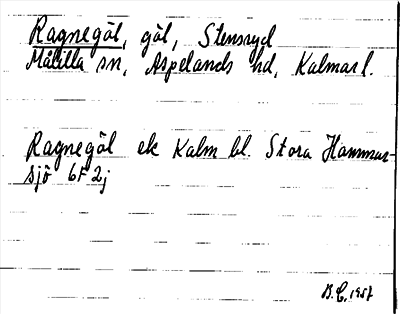 Ragnegöl, göl, Stensryd
Målilla sn, Aspelands hd, Kalmar l.
Ragnegöl ek Kalm bl. Stora Hammar-
sjö 6F 2j
B.E. 1957